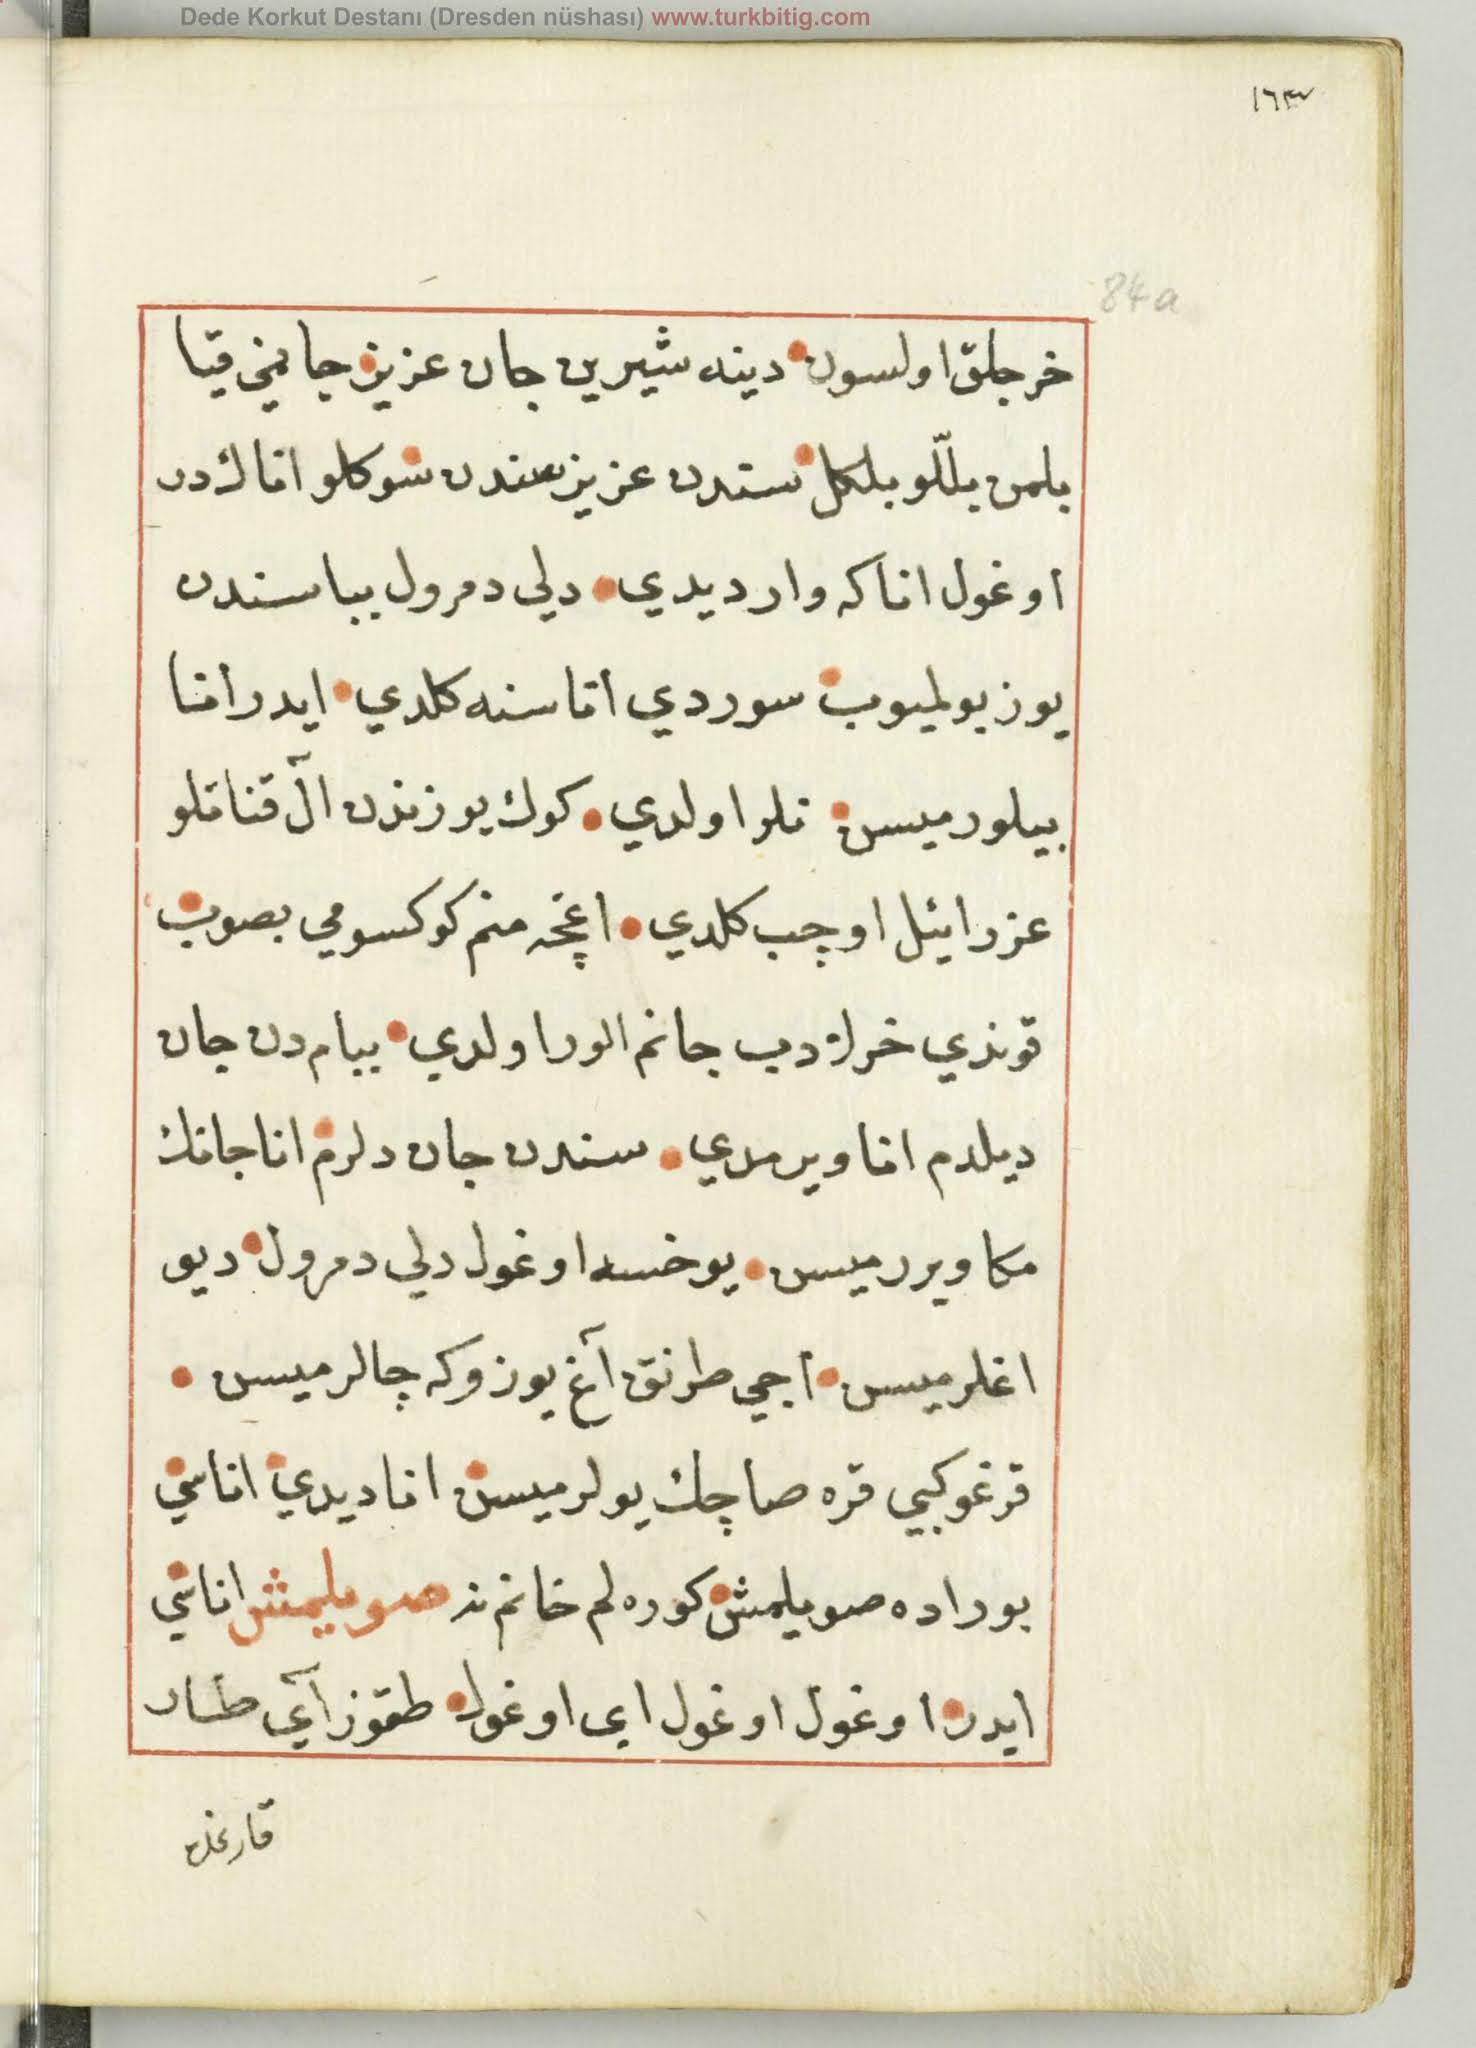 Dede Korkut Destanı (Dresden nüshası) www.turkbitig.com
84a
خرجلق اولسون دينه شيرين جان عزيز جانمي قيا
بلمن بللو بلكل سندن عزيز سندن سوكلو اناك در
اوغول اناكه وار ديدي دلي دمرول بباسندن
يوز بولميوب سوردي اناسنه كلدي ايدر انا
بيلورميسن نلر اولدي كوك يوزندن آل قناتلو
عزرائيل اوچب كلدي اغچه منم كوكسومي بصوب
قوندي خرلادب جانم الور اولدي ببام دن جان
ديلدم انا ويرمدي سندن جان دلرم انا جانك
مكا ويررميسن يوخسه اوغول دلي دمرول ديو
اغلرميسن اجي طرنق آغ يوزوكه چالرميسن
قرغو كبي قره صاچك يولرميسن انا ديدي اناسي
بوراده صويلمش كوره لم خانم نه صويلمش اناسي
ايدر اوغول اوغول اى اوغول طقوز آي طار